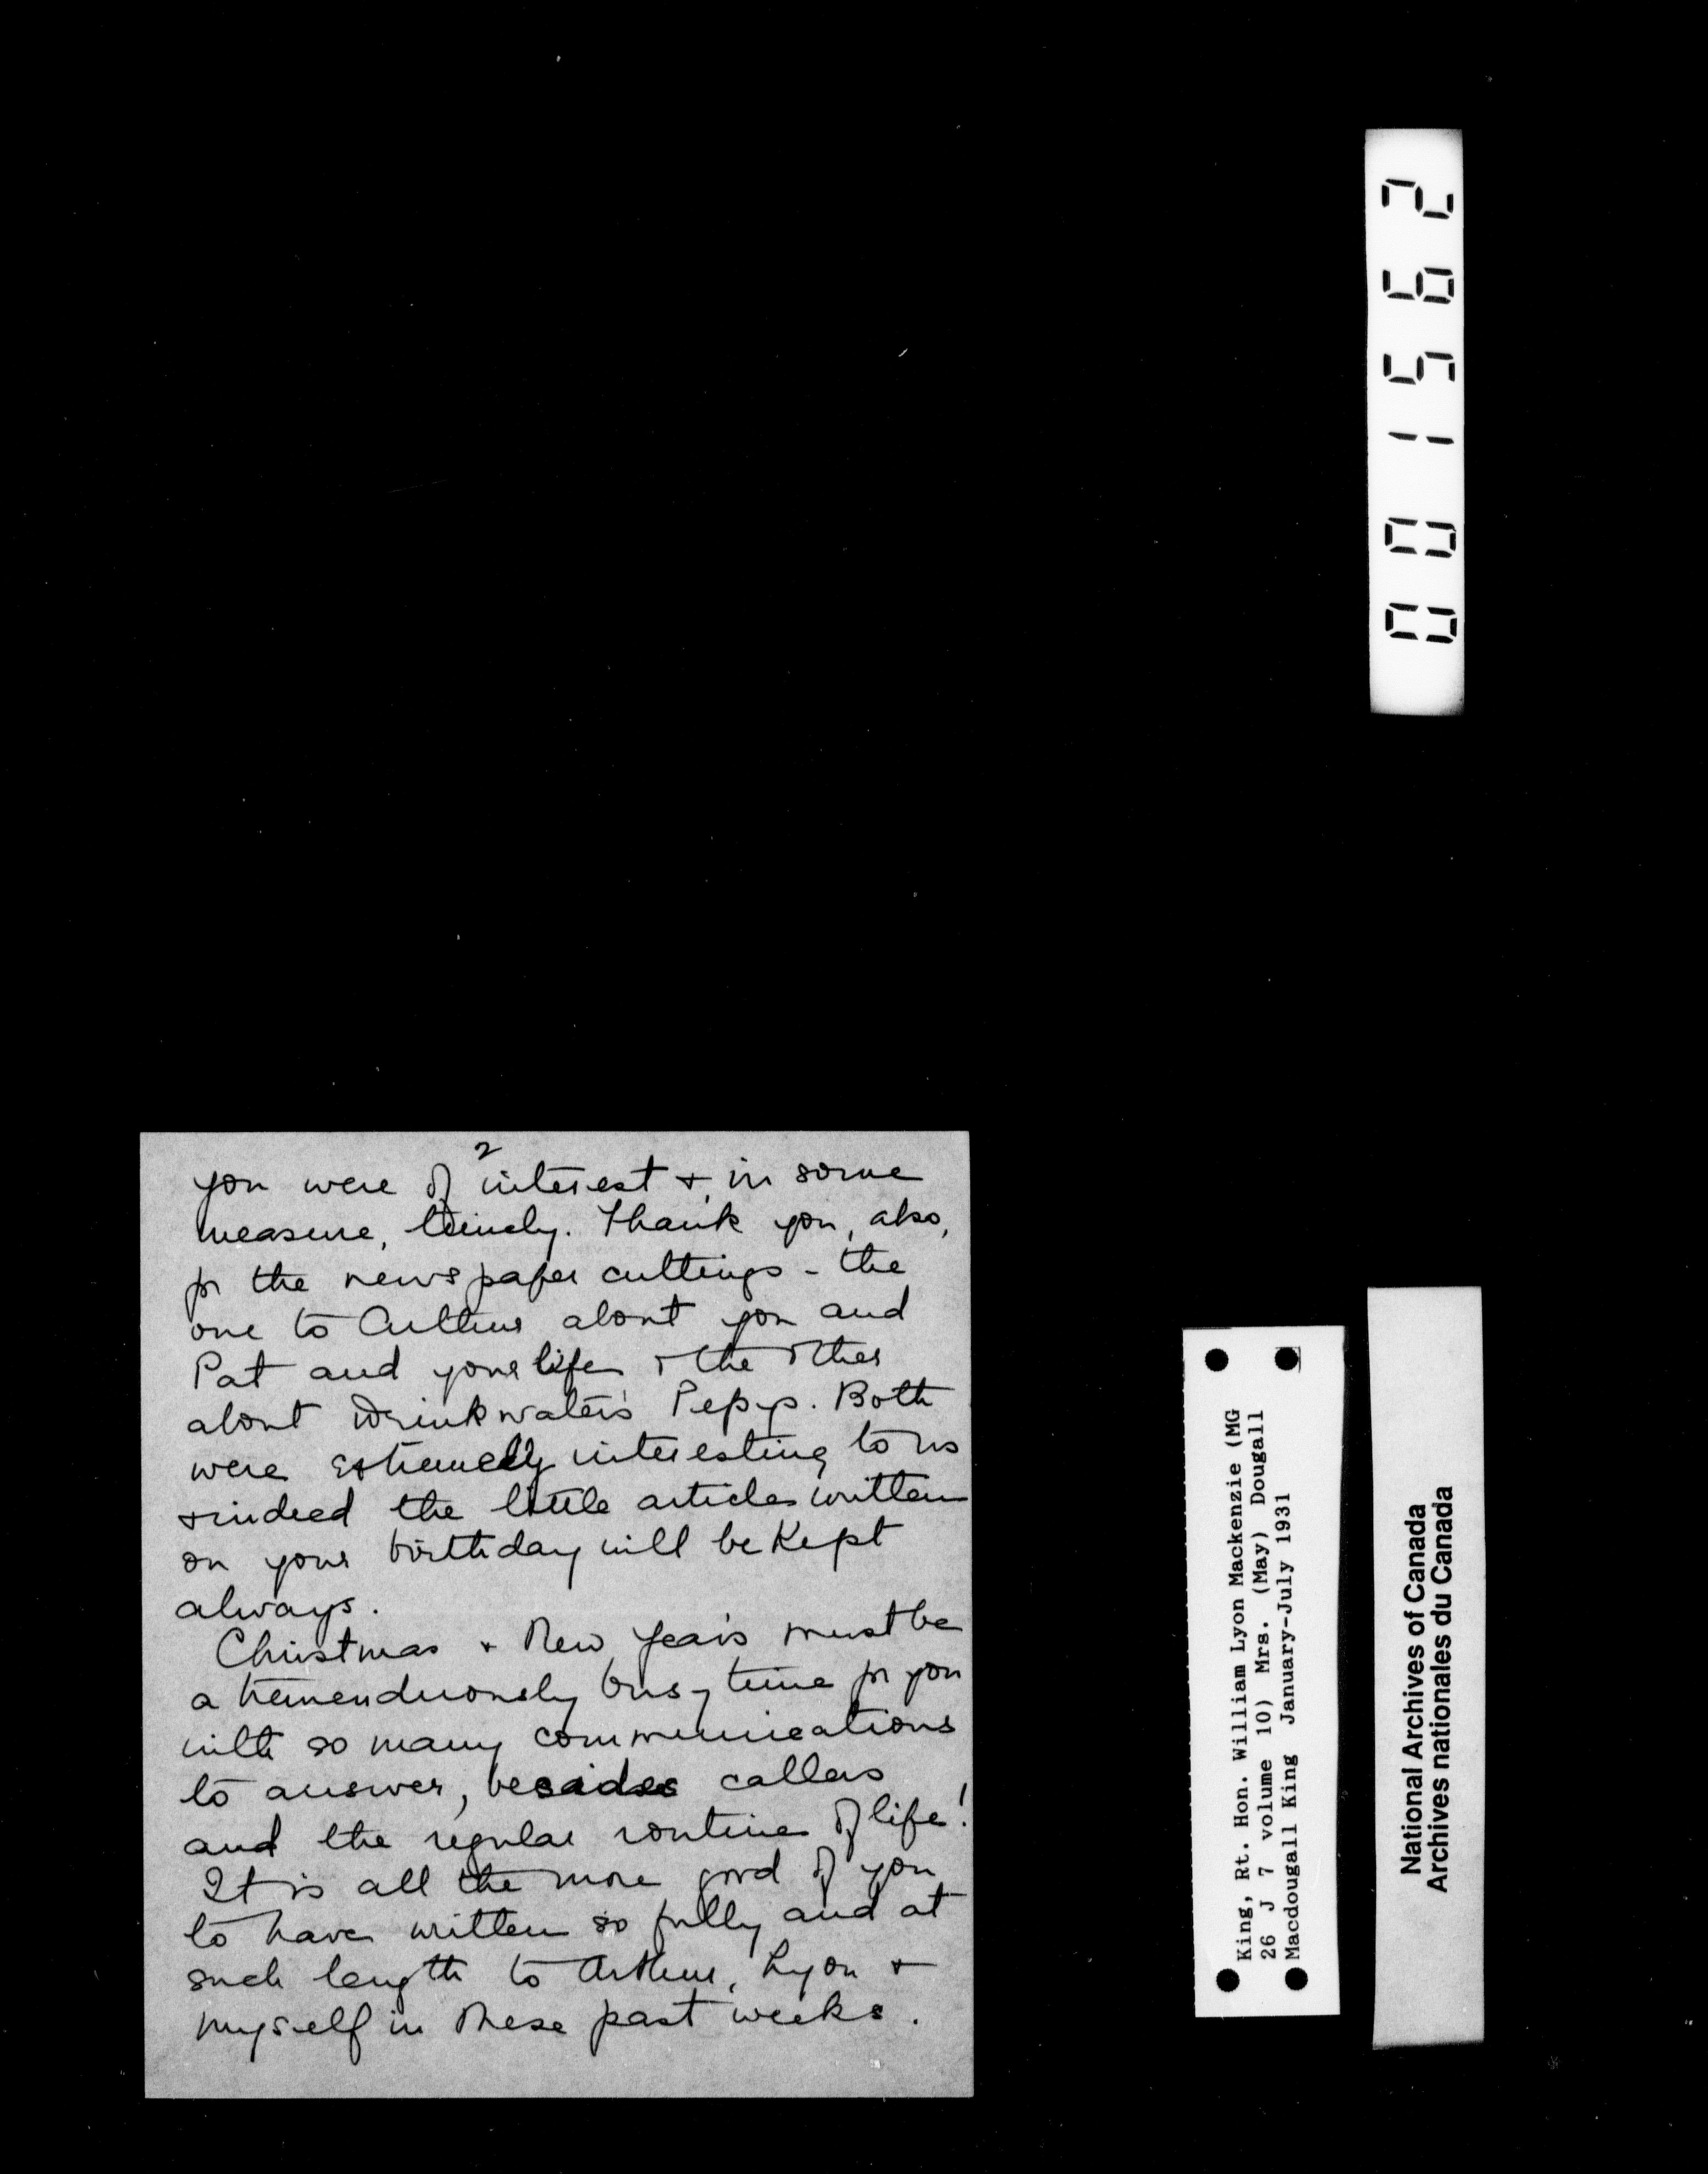 2
you were of interest & in some
measure, timely. Thank you, also,
for the newspaper cuttings - the
one to Arthur about you and
Pat and your life & the other
about Drinkwater's Pepys. Both
were extremely interesting to us
& indeed the little article written
on your birthday will be kept
always.
Christmas & New Year's must be
a tremenduously busy time for you
with so many communications
to answer, besides callers
and the regular routine of life!
It is all the more good of you
to have written so fully and at
such length to Arthur, Lyon &
myself in these past weeks.
001562
King, Rt. Hon. William Lyon Mackenzie (MG
26 J 7 volume 10) Mrs. (May) Dougall
Macdougall King January-July 1931
National Archives of Canada
Archives nationales du Canada